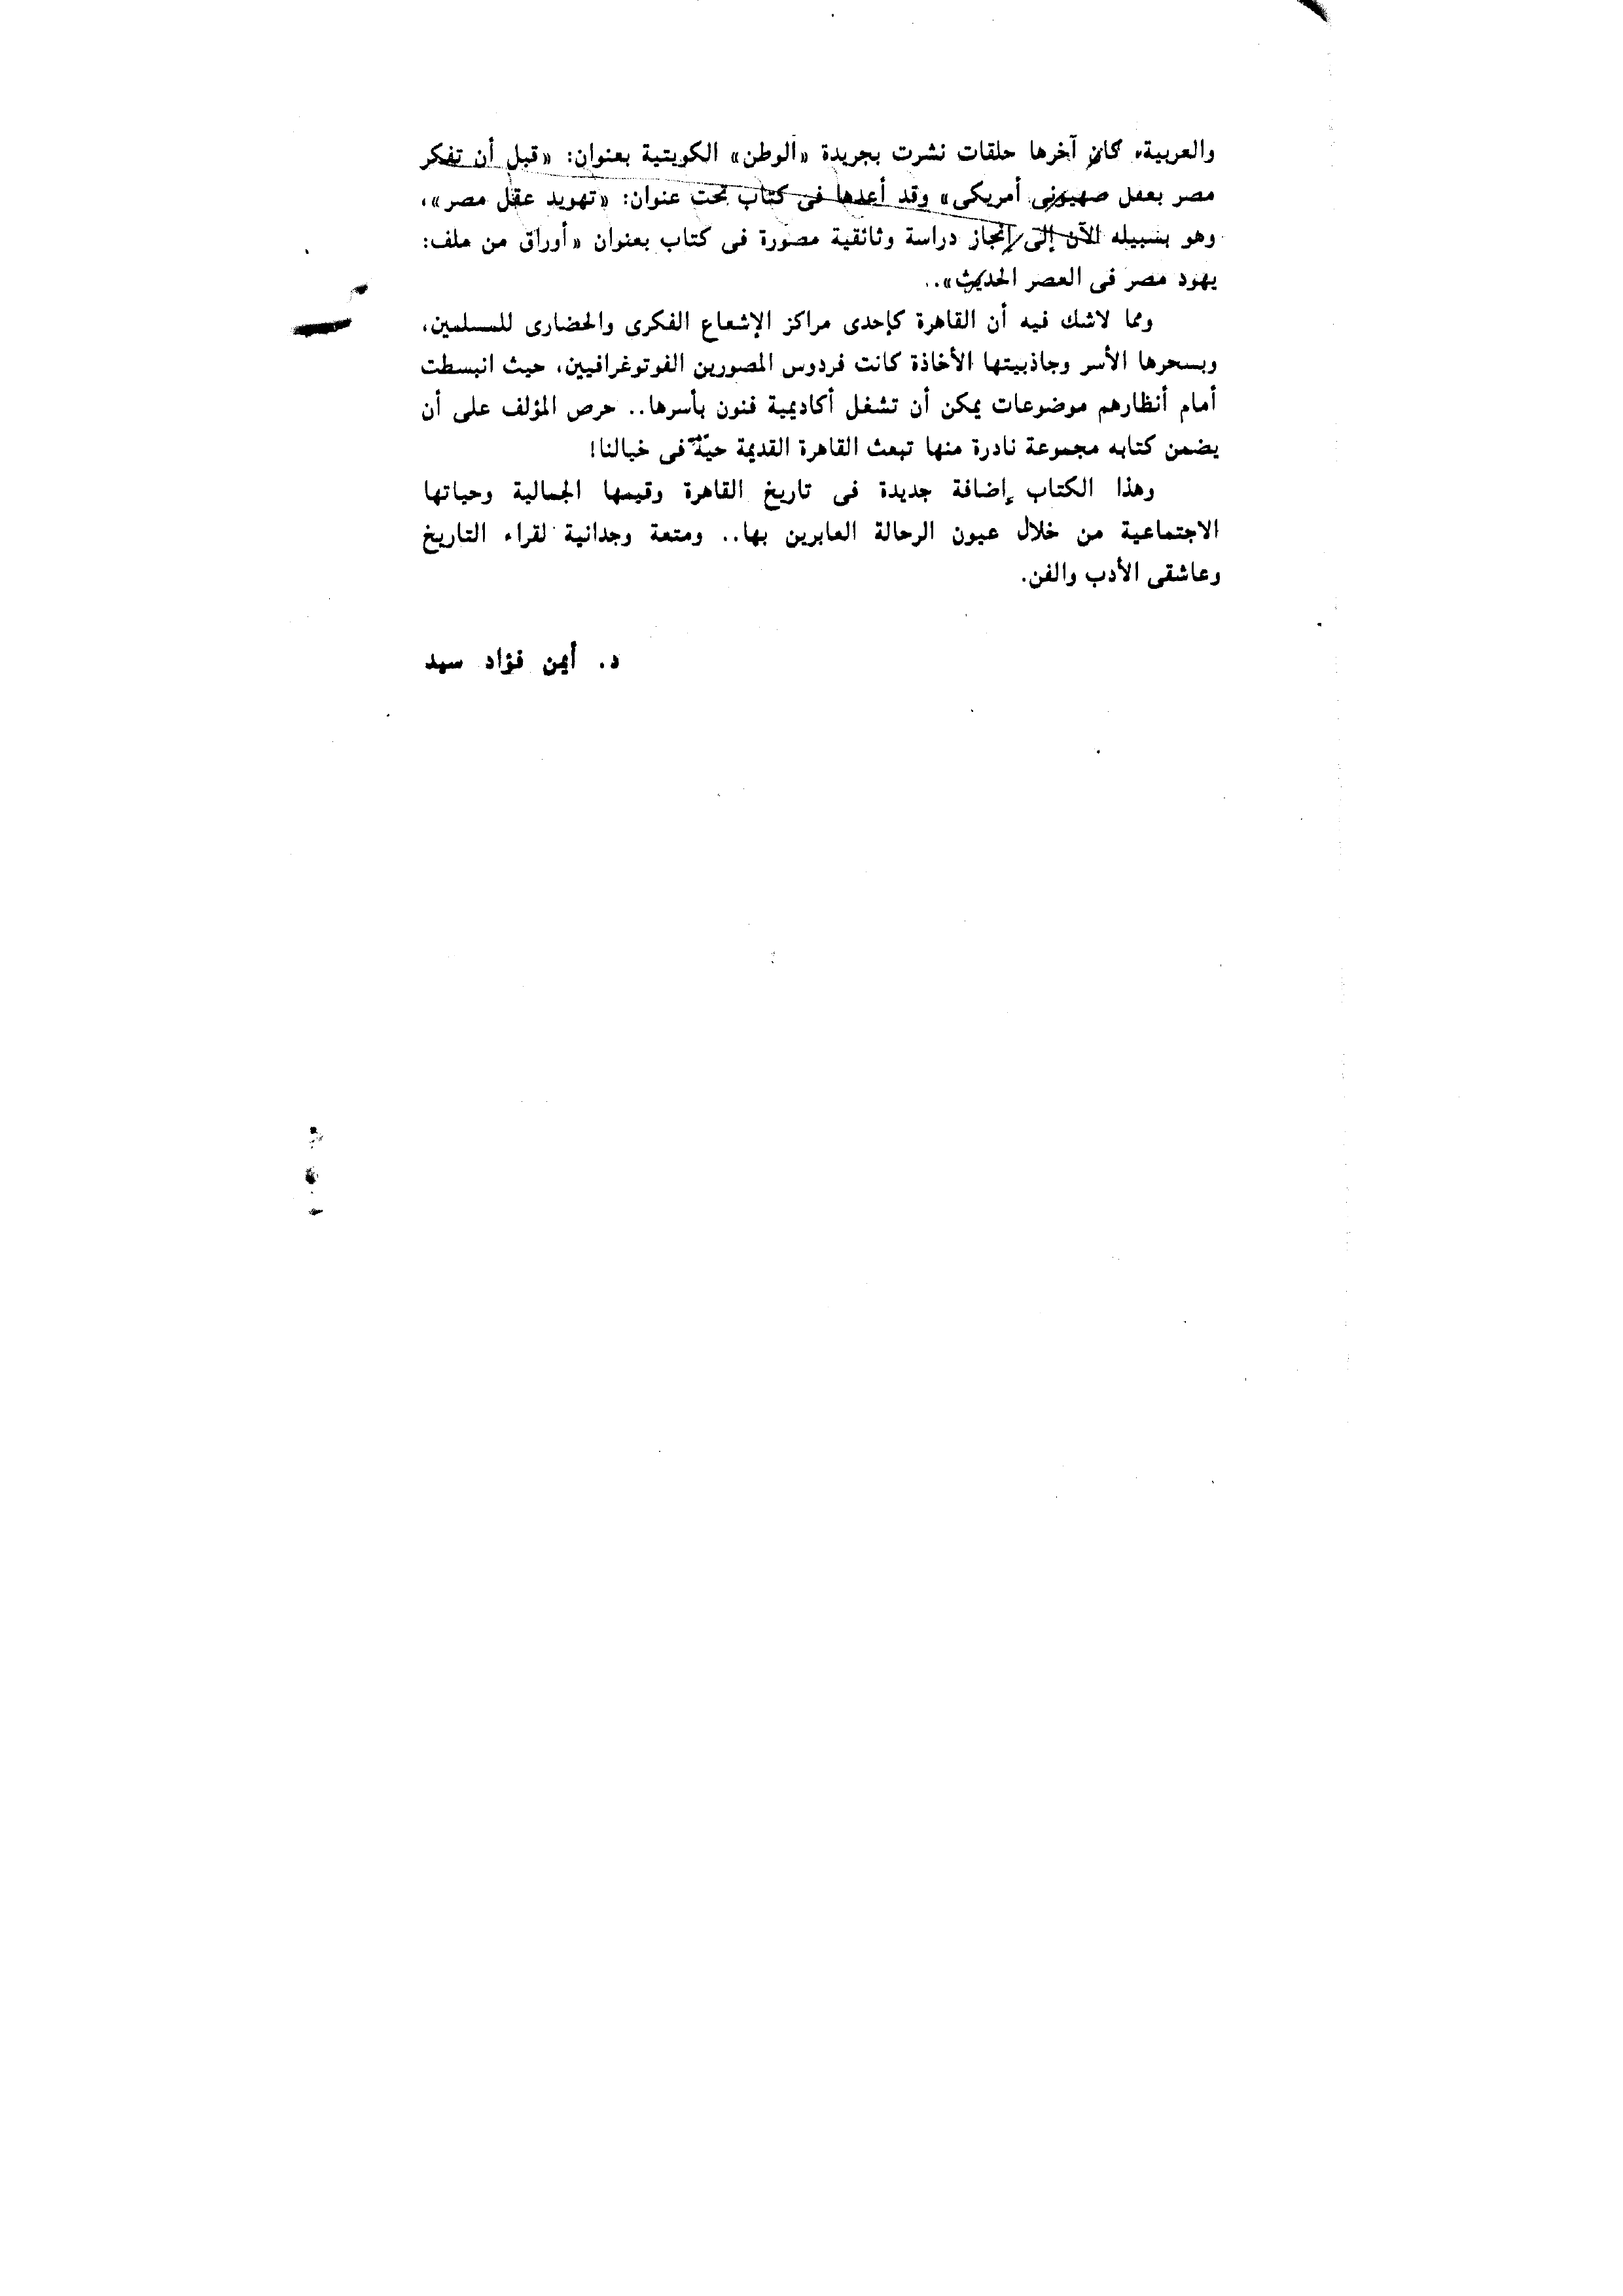 والعربية، كان آخرها حلقات نشرت بجريدة «الوطن» الكويتية بعنوان: «قبل أن تفكر
مصر بعقل صهيونى أمريكى» وقد أعدها فى كتاب تحت عنوان: «تهويد عقل مصر»،
وهو بسبيله الآن إلى إنجاز دراسة وثائقية مصورة فى كتاب بعنوان «أوراق من ملف:
يهود مصر فى العصر الحديث»..
ومما لاشك فيه أن القاهرة كإحدى مراكز الإشعاع الفكرى والحضارى للمسلمين،
وبسحرها الأسر وجاذبيتها الأخاذة كانت فردوس المصورين الفوتوغرافيين، حيث انبسطت
أمام أنظارهم موضوعات يمكن أن تشغل أكاديمية فنون بأسرها.. حرص المؤلف على أن
يضمن كتابه مجموعة نادرة منها تبعث القاهرة القديمة حيّة فى خيالنا!
وهذا الكتاب إضافة جديدة فى تاريخ القاهرة وقيمها الجمالية وحياتها
الاجتماعية من خلال عيون الرحالة العابرين بها.. ومتعة وجدانية لقراء التاريخ
وعاشقى الأدب والفن.
د. أيمن فؤاد سيد